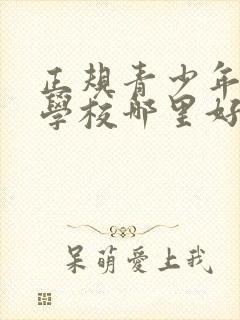 正规青少年
學校哪里好
呆萌愛上我